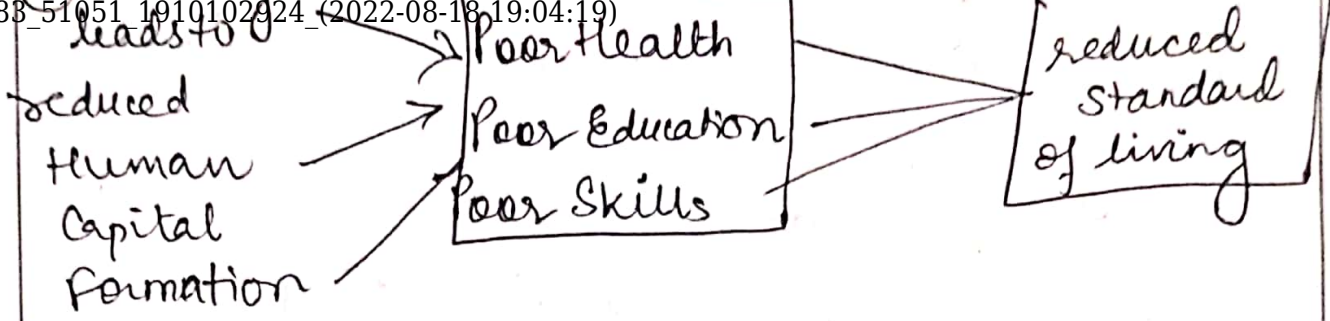 83_51051_1910102924_(2022-08-18 19:04:19)
leads to
reduced
Human
Capital
formation
Poor Health
Poor Education
Poor Skills
reduced
standard
of living